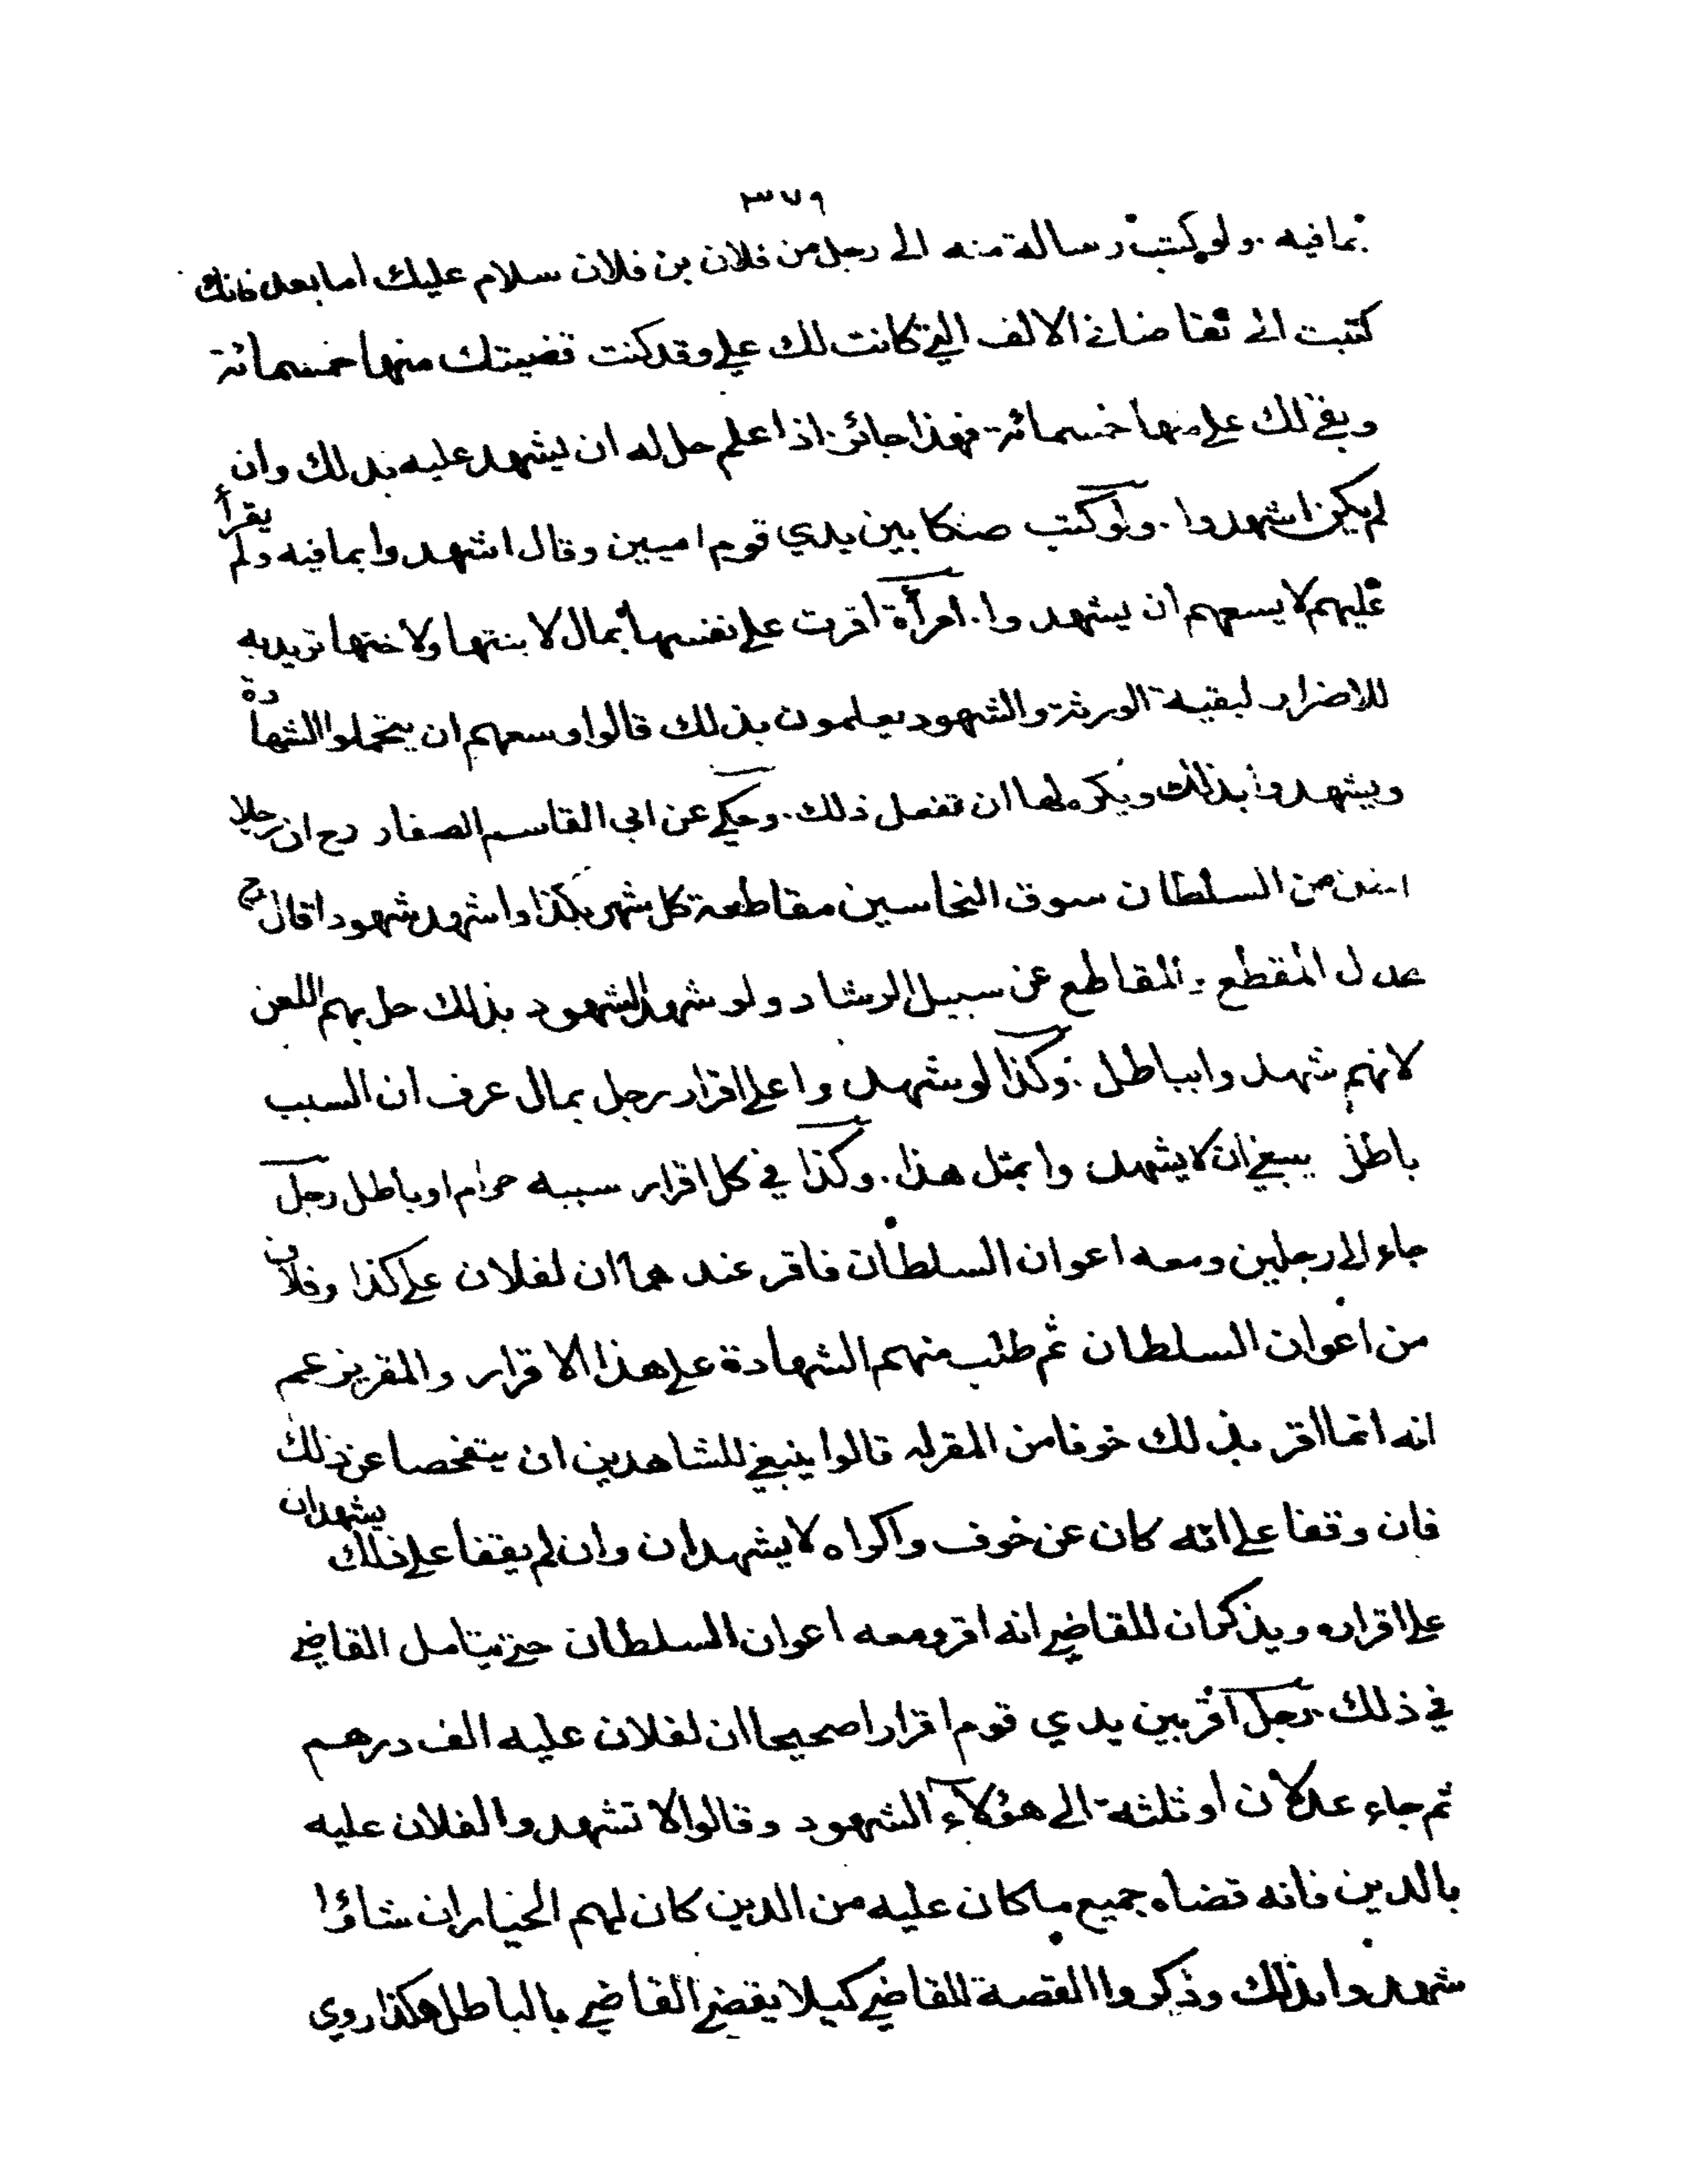 ٣٧٩
بمافيه ٠ ولو كتب رسالة منه الى رجل من فلان بن فلان سلام عليك اما بعد فانك
كتبت الى تقاضاني الالف التي كانت لك علي وقد كنت قضيتك منها خمسمائة
وبقي لك علي منها خمسمائة فهذا جائز اذا علم حل له ان يشهد عليه بذلك وان
لم يكن اشهدوا ٠ ولو كتب صكا بين يدي قوم اميين وقال اشهدوا بما فيه ولم يقرأ
عليهم لا يسعهم ان يشهدوا ٠ امرأة اقرت على نفسها بمال لابنتها ولاختها تريد به
للاضرار لبقية الورثة والشهود يعلمون بذلك قالوا وسعهم ان يتحملوا الشهادة
ويشهدوا بذلك ويكره لها ان تفعل ذلك ٠ وحكي عن ابي القاسم الصفار رح ان رجلا
من السلطان سوق النخاسين مقاطعة كل شهر بكذا واشهد شهودا قال رح
عدل المقطع والمقاطع عن سبيل الرشاد ولو شهد الشهود بذلك حل بهم اللعن
لانهم شهدوا بباطل ٠ وكذا لو شهدوا على اقرار رجل بمال عرف ان السبب
باطل ينبغي ان لا يشهدوا بمثل هذا ٠ وكذا في كل اقرار سببه حرام او باطل رجل
جاء الى رجلين ومعه اعوان السلطان فاقر عندهما ان لفلان علي كذا وفلان
من اعوان السلطان ثم طلب منهم الشهادة على هذا الاقرار والمقر يزعم
انه انما اقر بذلك خوفا من المقر له قالوا ينبغي للشاهدين ان يتفحصا عن ذلك
فان وقفا على انه كان عن خوف واكراه لا يشهدان وان لم يقفا على ذلك يشهدان
على اقراره ويذكران للقاضي انه اقر ومعه اعوان السلطان حتى يتامل القاضي
في ذلك ٠ رجل اقر بين يدي قوم اقرارا صحيحا ان لفلان عليه الف درهم
ثم جاء عدلان او ثلثة الى هؤلاء الشهود وقالوا لا تشهدوا لفلان عليه
بالدين فانه قضاه جميع ما كان عليه من الدين كان لهم الخيار ان شاؤا
شهدوا بذلك وذكروا القصة للقاضي كيلا يقضي القاضي بالباطل هكذا روي